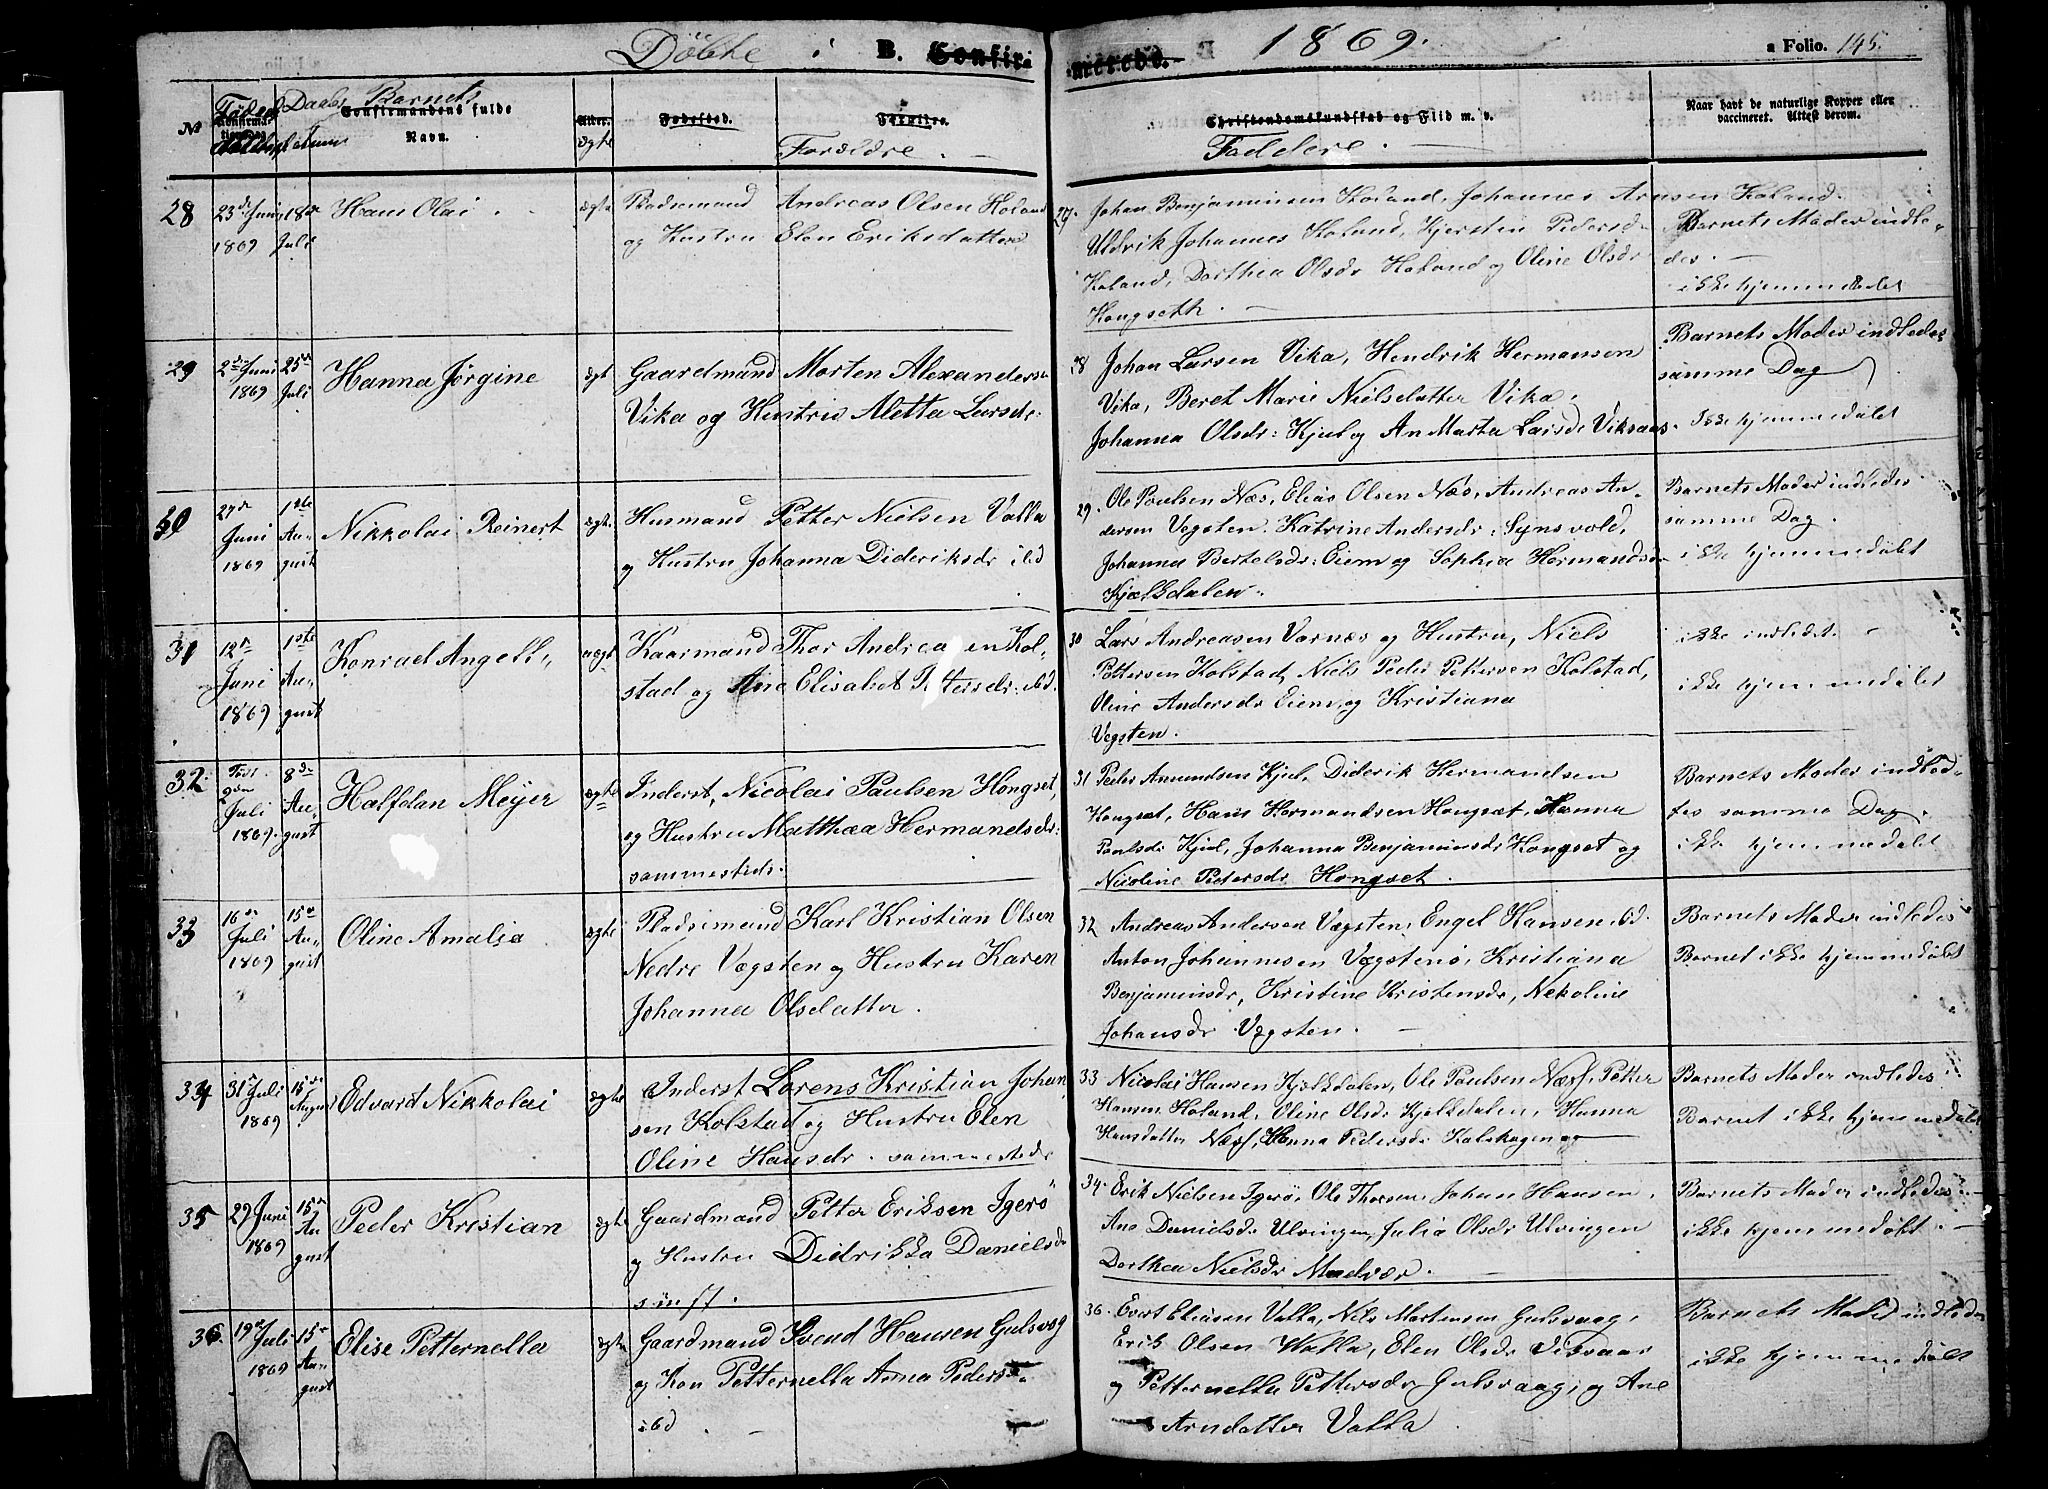 Döbte i B. Confir-
mered. 1869. a Folio. 145.
No Fødsel Daabs Datum Barnets Confirmandens fulde Navn. Alter. Ægte Fødested. Familie. Forældre. Christendomskundskab og Flid m. v. Faddere. Naar havt de naturlige Kopper eller vaccineret. Attest derom.
28 23de Juni 1869 18de Juli Hans Olai. ægte Pladsmand Andreas Olsen Holand
og Hustru Elen Eriksdatter
27. Johan Benjaminsen Holand, Johannes Arnsen Holand.
Uldrik Johannes Holand, Kjersten Pedersd
Holand, Dorthea Olsdr Holand og Oline Olsdr
Hongseth.
Barnets Moder indle-
des.
ikke hjemmedøbt
29 2den Juni 1869 25de Juli Hanna Jørgine ægt Gaardmand Morten Alexanders
Vika og Hustru Aletta Larsdr:
28 Johan Larsen Vika, Hendrik Hermansen
Vika, Beret Marie Nielsdatter Vika,
Johanna Olsdr: Kjul og An Marta Larsd Viksaas
Barnets Moder indledes
samme Dag
Ikke hjemmedøbt
30 27de Juni 1869 1ste August Nikkolai Reinert ægte Husmand Petter Nielsen Valla
og Hustru Johanna Dideriksdr ibd
29. Ole Poulsen Næs, Elias Olsen Næs, Andreas An-
dersen Vegsten. Katrine Andersdr: Synsvold,
Johanna Bertelsdr: Eiem og Sophia Hermandsdr
Kjælkdalen.
Barnets Moder indledes
samme Dag.
ikke hjemmedøbt
31 12te Juni 1869 1ste August Konrad Angell, uægt Kaarmand Thor Andreasen Kol-
stad og Ane Elisabet Pettersdr: ibd.
30 Lars Andreasen Vornæs og Hustru, Niels
Pettersen Kolstad, Niels Peder Pettersen Kolstad,
Oline Andersdr Eiem, og Kristiana
Vegsten.
ikke indledet.
ikke hjemmedøbt
32. Juli 1869. 8de August Halfdan Meyer ægte Inderst, Nicolai Paulsen Hongset,
og Hustru Matthæa Hermandsdr:
sammesteds.
31 Peder Amundsen Kjul, Diderik Hermandsen
Hongset, Hans Hermandsen Hongset, Hanna
Paulsdr Kjul, Johanna Benjaminsdr Hongset og
Nicoline Pedersdr Hongset.
Barnets Moder indled-
tes samme Dag.
ikke hjemmedøbt
33 16de Juli 1869 15de August Oline Amalia ægte Pladsmand Karl Kristian Olsen
Nedre Vægsten og Hustru Karen
Johanna Olsdatter.
32 Andreas Andersen Vægsten, Engel Hansen ibd.
Anton Johannesen Vægstenø, Kristiana
Benjaminsdr, Kristine Kristensdr, Nekoline
Johansdr Vegsten.
Barnets Moder indledes
Barnet ikke hjemmedøbt
34 31de Juli 1869 15de August Edvard Nikkolai ægte Inderst Lorens Kristian Johan
sen Kolstad og Hustru Elen
Oline Hansdr. sammesteds
33 Nicolai Hansen Kjelkdalen, Ole Paulsen Næss, Petter
Hansen Holand, Oline Olsdr Kjelkdalen, Hanna
Hansdatter Næss, Hanna Pedersdr Kalskagen og
Barnets Moder indledes
Barnet ikke hjemmedøbt
35 29 Juni 1869 15de August Peder Kristian ægte Gaardmand Petter Eriksen Igerø
og Hustru Didrikka Danielsdr
34. Erik Nielsen Igerø, Ole Thorsen, Johan Hansen,
Ane Danielsdr Ulvingen, Julia Olsdr Ulvingen
Dorthea Nielsdr Madvær.
Barnets Moder indledes
ikke hjemmedøbt.
36. 19de Juli 1869 15de August Elise Petternella ægte Gaardmand Svend Hansen Gulsvog
og Kon Petternella Anna Pedersdr
ibd.
36. Evert Eliasen Valla, Nels Mortensen Gulsvaag,
Erik Olsen Walla, Elen Olsdr Viksaas
og Petternella Pettersdr Gulsvaag, og Ane
Arndatter Valla
Barnets Moder indledes
ikke hjemmedøbt